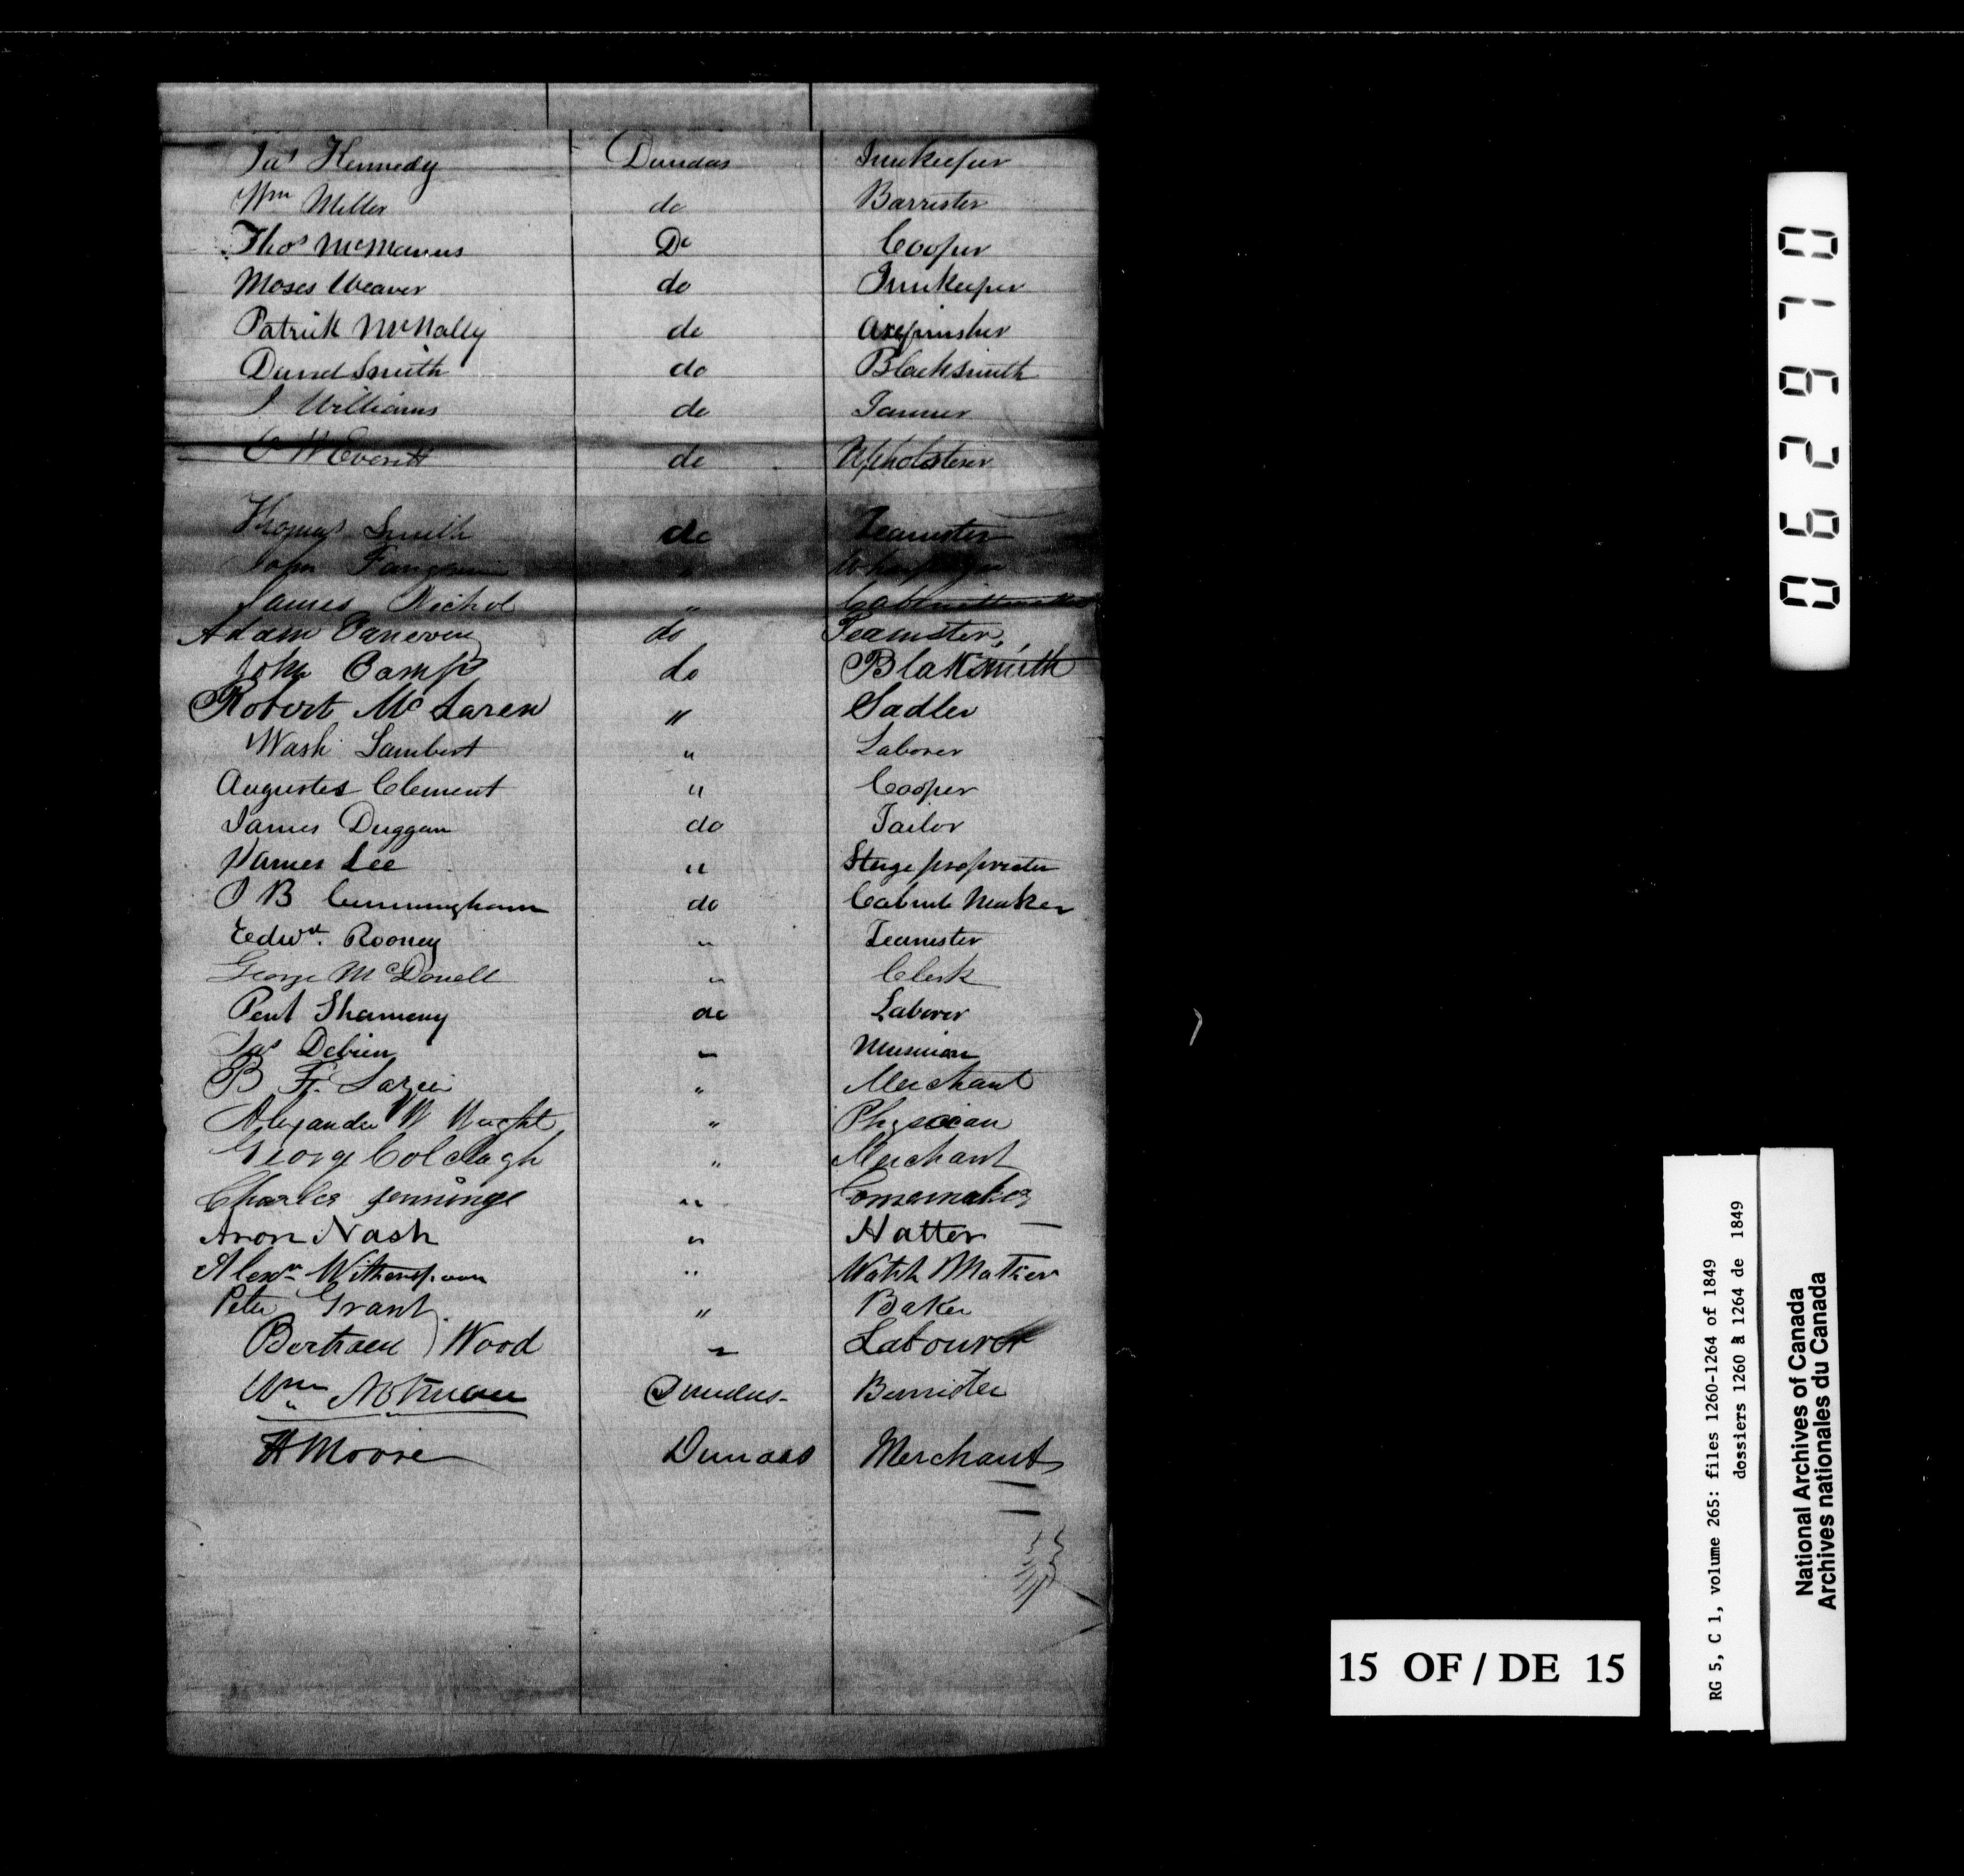 Jas Kennedy Dundas Innkeeper
Wm Miller do Barrister
Thos McManus Do Cooper
Moses Weaver do Innkeeper
Patrick McNally do axefinisher
David Smith do Blacksmith
J Williams do Tanner
C W Everitt do Upholsterer
Thomas Smith do Teamster
John "
James Nichol " Cabinettmaker
Adam Vanevery do Teamster
John Camp do Blaksmith
Robert McLaren " Sadler
Wash Lambert " Laborer
Augustes Clement " Cooper
James Duggan do Tailor
James Lee " Stage proprietor
J B Cunningham do Cabinet Maker
Edwd. Rooney " Teamster
George McDonell " Clerk
do Laborer
Jas " Musician
B F. " Merchant
Alexander W Wright " Physician
George Colclough " Merchant
Charles Jennings "
Aron Nash " Hatter
Alexr Witherspoon " Watch Maker
Peter Grant " Baker
Bertram Wood " Labourer
Wm Notman Dundas Barrister
H Moore Dundas Merchant
062970
RG 5, C 1, volume 265: files 1260-1264 of 1849
dossiers 1260 à 1264 de 1849
National Archives of Canada
Archives nationales du Canada
15 OF / DE 15